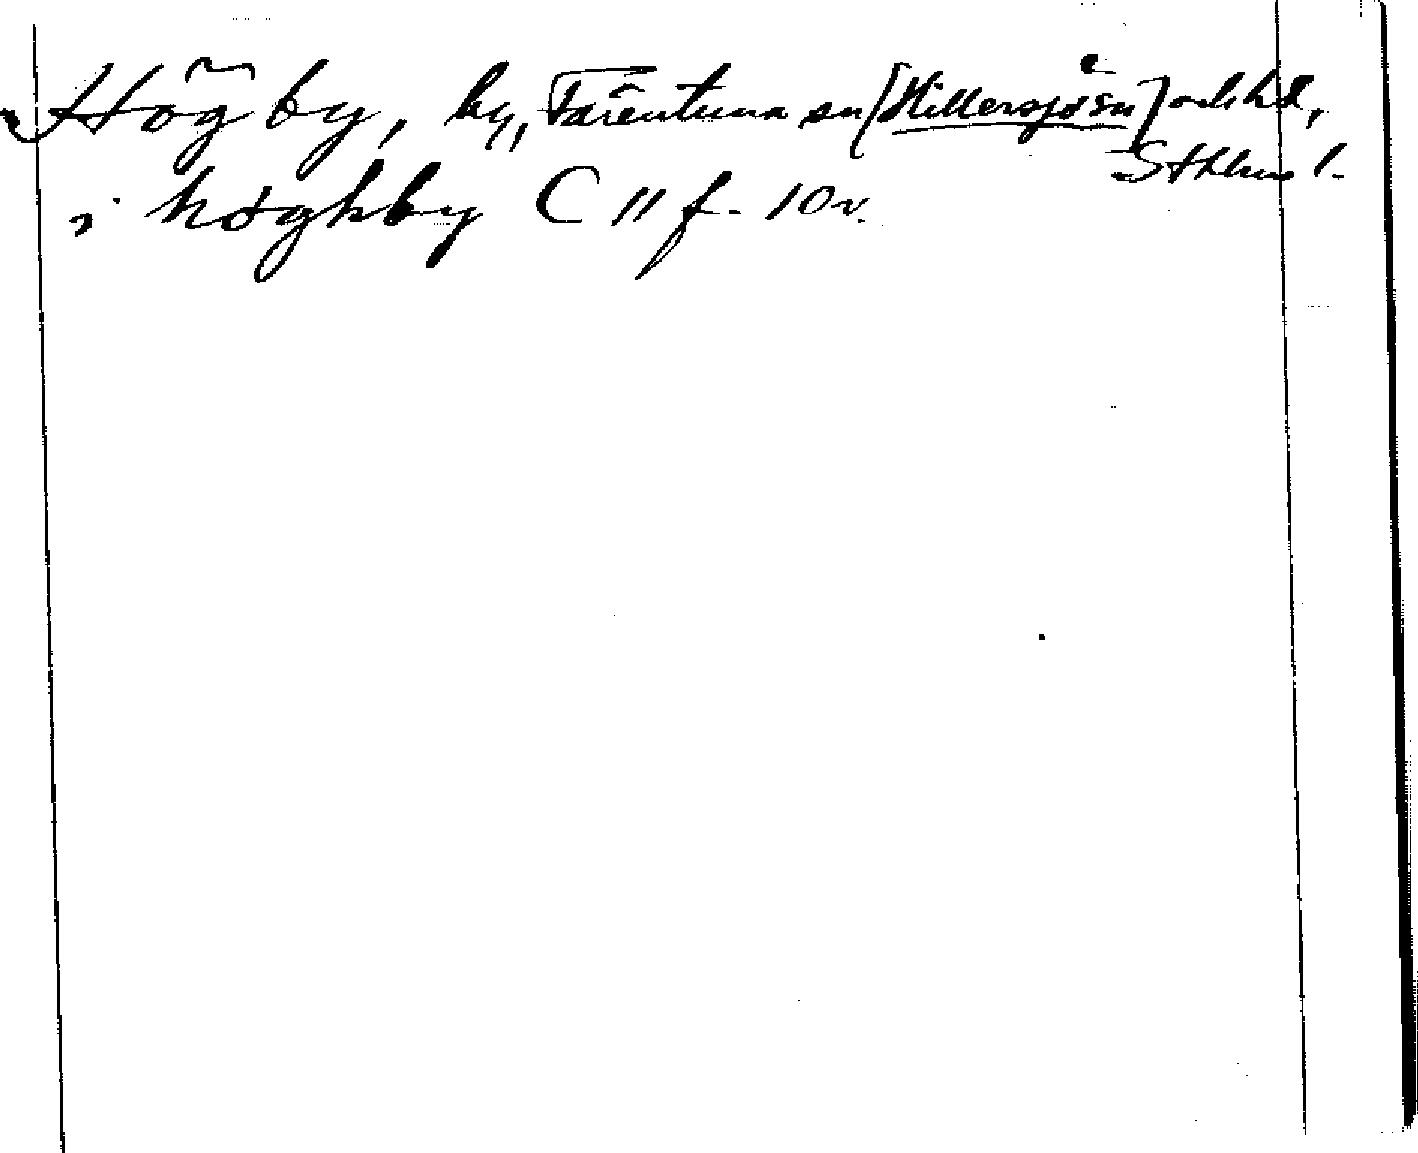 Högby, by, Färentuna sn [Hillersjö sn] och hd,
Sthlms l.
i høghby C 11 f. 10 v.